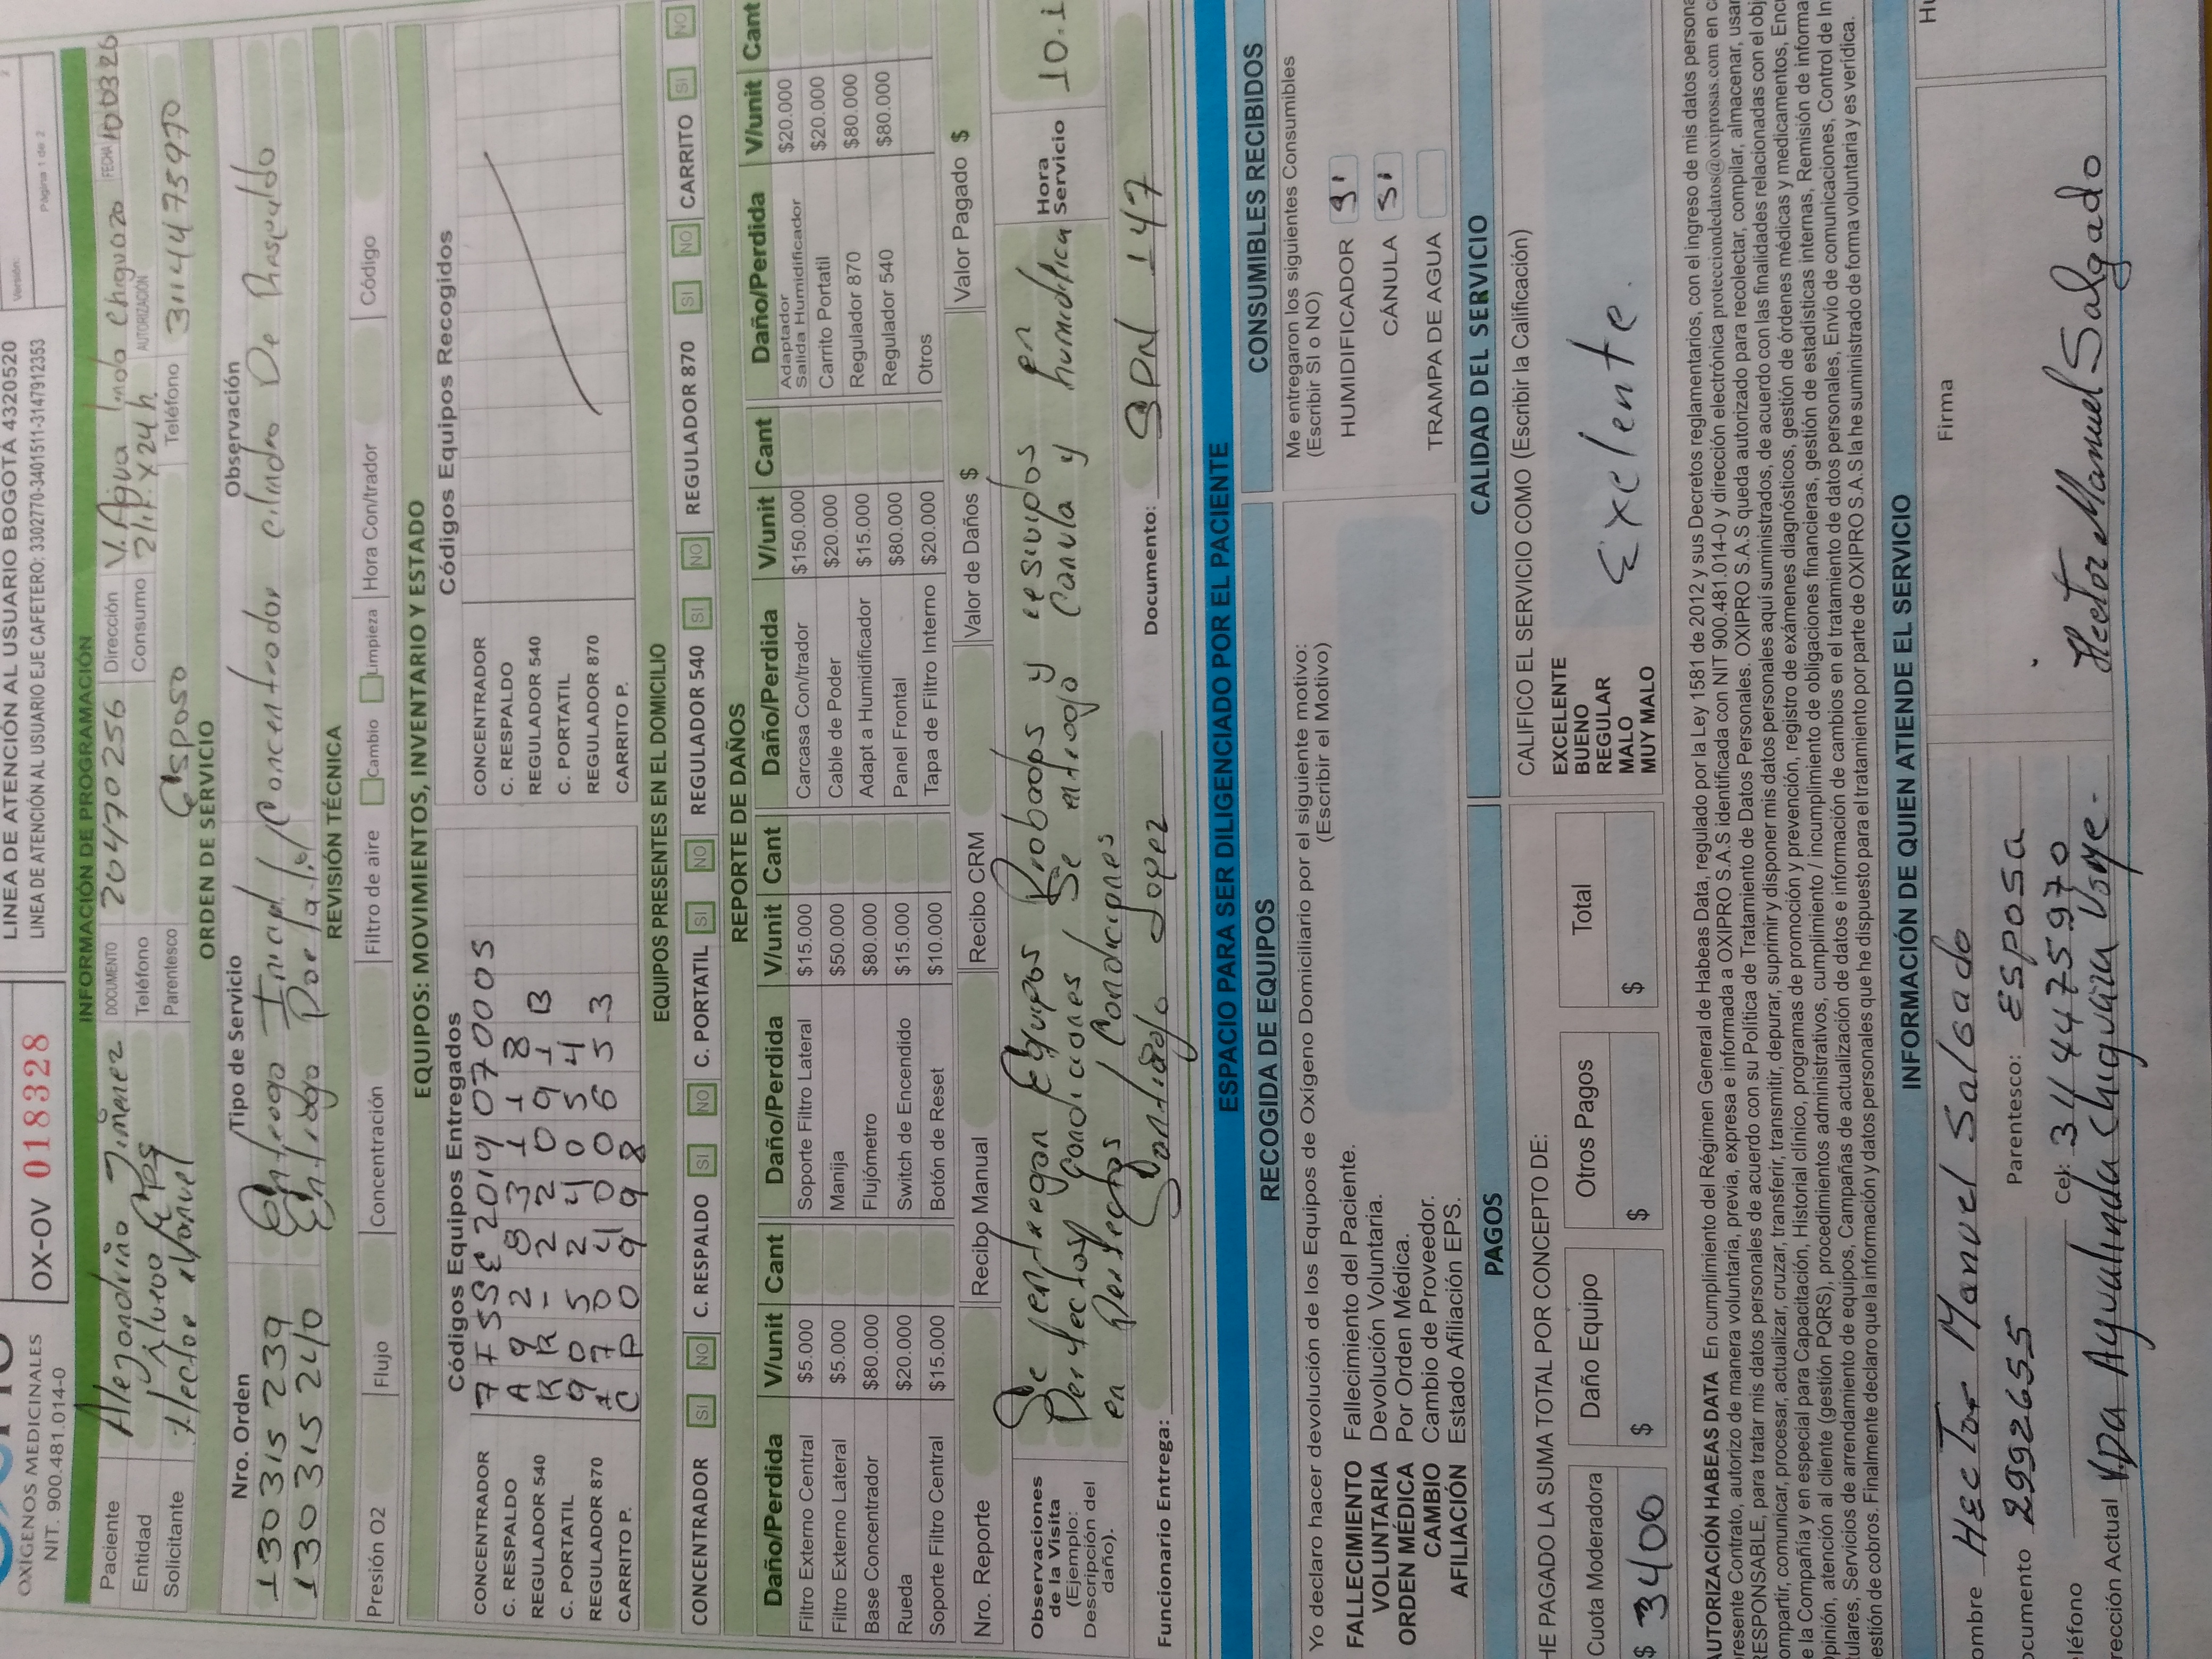 OXÍGENOS MEDICINALES
NIT. 900.481.014-0
OX-OV 018328
LINEA DE ATENCIÓN AL USUARIO BOGOTÁ 4320520
LINEA DE ATENCIÓN AL USUARIO EJE CAFETERO: 3302770-3401511-3147912353
Versión:
Pagina 1 de 2
INFORMACIÓN DE PROGRAMACIÓN
Paciente Alejandrina Jimenez DOCUMENTO 20470256 Dirección V. Agua linda chiguaza FECHA 100326
Entidad Nueva Eps Teléfono Consumo 2 lit. x 24 h AUTORIZACIÓN
Solicitante Hector Manuel Parentesco Esposo Teléfono 3114475970
ORDEN DE SERVICIO
Nro. Orden Tipo de Servicio Observación
130315239 Entrega Inicial / Concentrador cilindro De Respaldo
130315240 Entrega Portatil
REVISIÓN TÉCNICA
Presión O2 Flujo Concentración Filtro de aire Cambio Limpieza Hora Con/trador Código
EQUIPOS: MOVIMIENTOS, INVENTARIO Y ESTADO
Códigos Equipos Entregados Códigos Equipos Recogidos
CONCENTRADOR 7FSSE201907000S CONCENTRADOR
C. RESPALDO A9283118 C. RESPALDO
REGULADOR 540 RR-22091B REGULADOR 540
C. PORTATIL 90524054 C. PORTATIL
REGULADOR 870 REGULADOR 870
CARRITO P. CP0998 CARRITO P.
EQUIPOS PRESENTES EN EL DOMICILIO
CONCENTRADOR SI NO C. RESPALDO SI NO C. PORTATIL SI NO REGULADOR 540 SI NO REGULADOR 870 SI NO CARRITO SI NO
REPORTE DE DAÑOS
Daño/Perdida V/unit Cant Daño/Perdida V/unit Cant Daño/Perdida V/unit Cant Daño/Perdida V/unit Cant
Filtro Externo Central $5.000 Soporte Filtro Lateral $15.000 Carcasa Con/trador $150.000 Adaptador Salida Humidificador $20.000
Filtro Externo Lateral $5.000 Manija $50.000 Cable de Poder $20.000 Carrito Portatil $20.000
Base Concentrador $80.000 Flujómetro $80.000 Adapt a Humidificador $15.000 Regulador 870 $80.000
Rueda $20.000 Switch de Encendido $15.000 Panel Frontal $80.000 Regulador 540 $80.000
Soporte Filtro Central $15.000 Botón de Reset $10.000 Tapa de Filtro Interno $20.000 Otros
Nro. Reporte Recibo Manual Recibo CRM Valor de Daños $ Valor Pagado $
Observaciones de la Visita (Ejemplo: Descripción del daño).
Se entregan Equipos Probados y recividos en
Perfectas Condiciones Se entrega Canula y humidifica
en Perfectas Condiciones
Hora Servicio 10.1
Funcionario Entrega: Santiago Lopez Documento: SDN 147
ESPACIO PARA SER DILIGENCIADO POR EL PACIENTE
RECOGIDA DE EQUIPOS
Yo declaro hacer devolución de los Equipos de Oxígeno Domiciliario por el siguiente motivo:
(Escribir el Motivo)
FALLECIMIENTO Fallecimiento del Paciente.
VOLUNTARIA Devolución Voluntaria.
ORDEN MÉDICA Por Orden Médica.
CAMBIO Cambio de Proveedor.
AFILIACIÓN Estado Afiliación EPS.
CONSUMIBLES RECIBIDOS
Me entregaron los siguientes Consumibles
(Escribir SI o NO)
HUMIDIFICADOR SI
CÁNULA SI
TRAMPA DE AGUA
PAGOS
HE PAGADO LA SUMA TOTAL POR CONCEPTO DE:
Cuota Moderadora Daño Equipo Otros Pagos Total
$ 3400 $ $ $
CALIDAD DEL SERVICIO
CALIFICO EL SERVICIO COMO (Escribir la Calificación)
EXCELENTE
BUENO
REGULAR
MALO
MUY MALO
Exelente.
AUTORIZACIÓN HABEAS DATA En cumplimiento del Régimen General de Habeas Data, regulado por la Ley 1581 de 2012 y sus Decretos reglamentarios, con el ingreso de mis datos persona
presente Contrato, autorizo de manera voluntaria, previa, expresa e informada a OXIPRO S.A.S identificada con NIT 900.481.014-0 y dirección electrónica protecciondedatos@oxiprosas.com en c
RESPONSABLE, para tratar mis datos personales de acuerdo con su Política de Tratamiento de Datos Personales. OXIPRO S.A.S queda autorizado para recolectar, compilar, almacenar, usar
ompartir, comunicar, procesar, actualizar, cruzar, transferir, transmitir, depurar, suprimir y disponer mis datos personales aquí suministrados, de acuerdo con las finalidades relacionadas con el obj
e la Compañía y en especial para Capacitación, Historial clínico, programas de promoción y prevención, registro de exámenes diagnósticos, gestión de órdenes médicas y medicamentos, Enc
pinión, atención al cliente (gestión PQRS), procedimientos administrativos, cumplimiento / incumplimiento de obligaciones financieras, gestión de estadísticas internas, Remisión de informa
ulares, Servicios de arrendamiento de equipos, Campañas de actualización de datos e información de cambios en el tratamiento de datos personales, Envío de comunicaciones, Control de In
estión de cobros. Finalmente declaro que la información y datos personales que he dispuesto para el tratamiento por parte de OXIPRO S.A.S la he suministrado de forma voluntaria y es verídica.
INFORMACIÓN DE QUIEN ATIENDE EL SERVICIO
ombre Hector Manuel Salgado
ocumento 2992655 Parentesco: Esposa
léfono Cel: 3114475970
rección Actual VDA Agualinda chiguaza
Firma
Hector Manuel Salgado
Hu